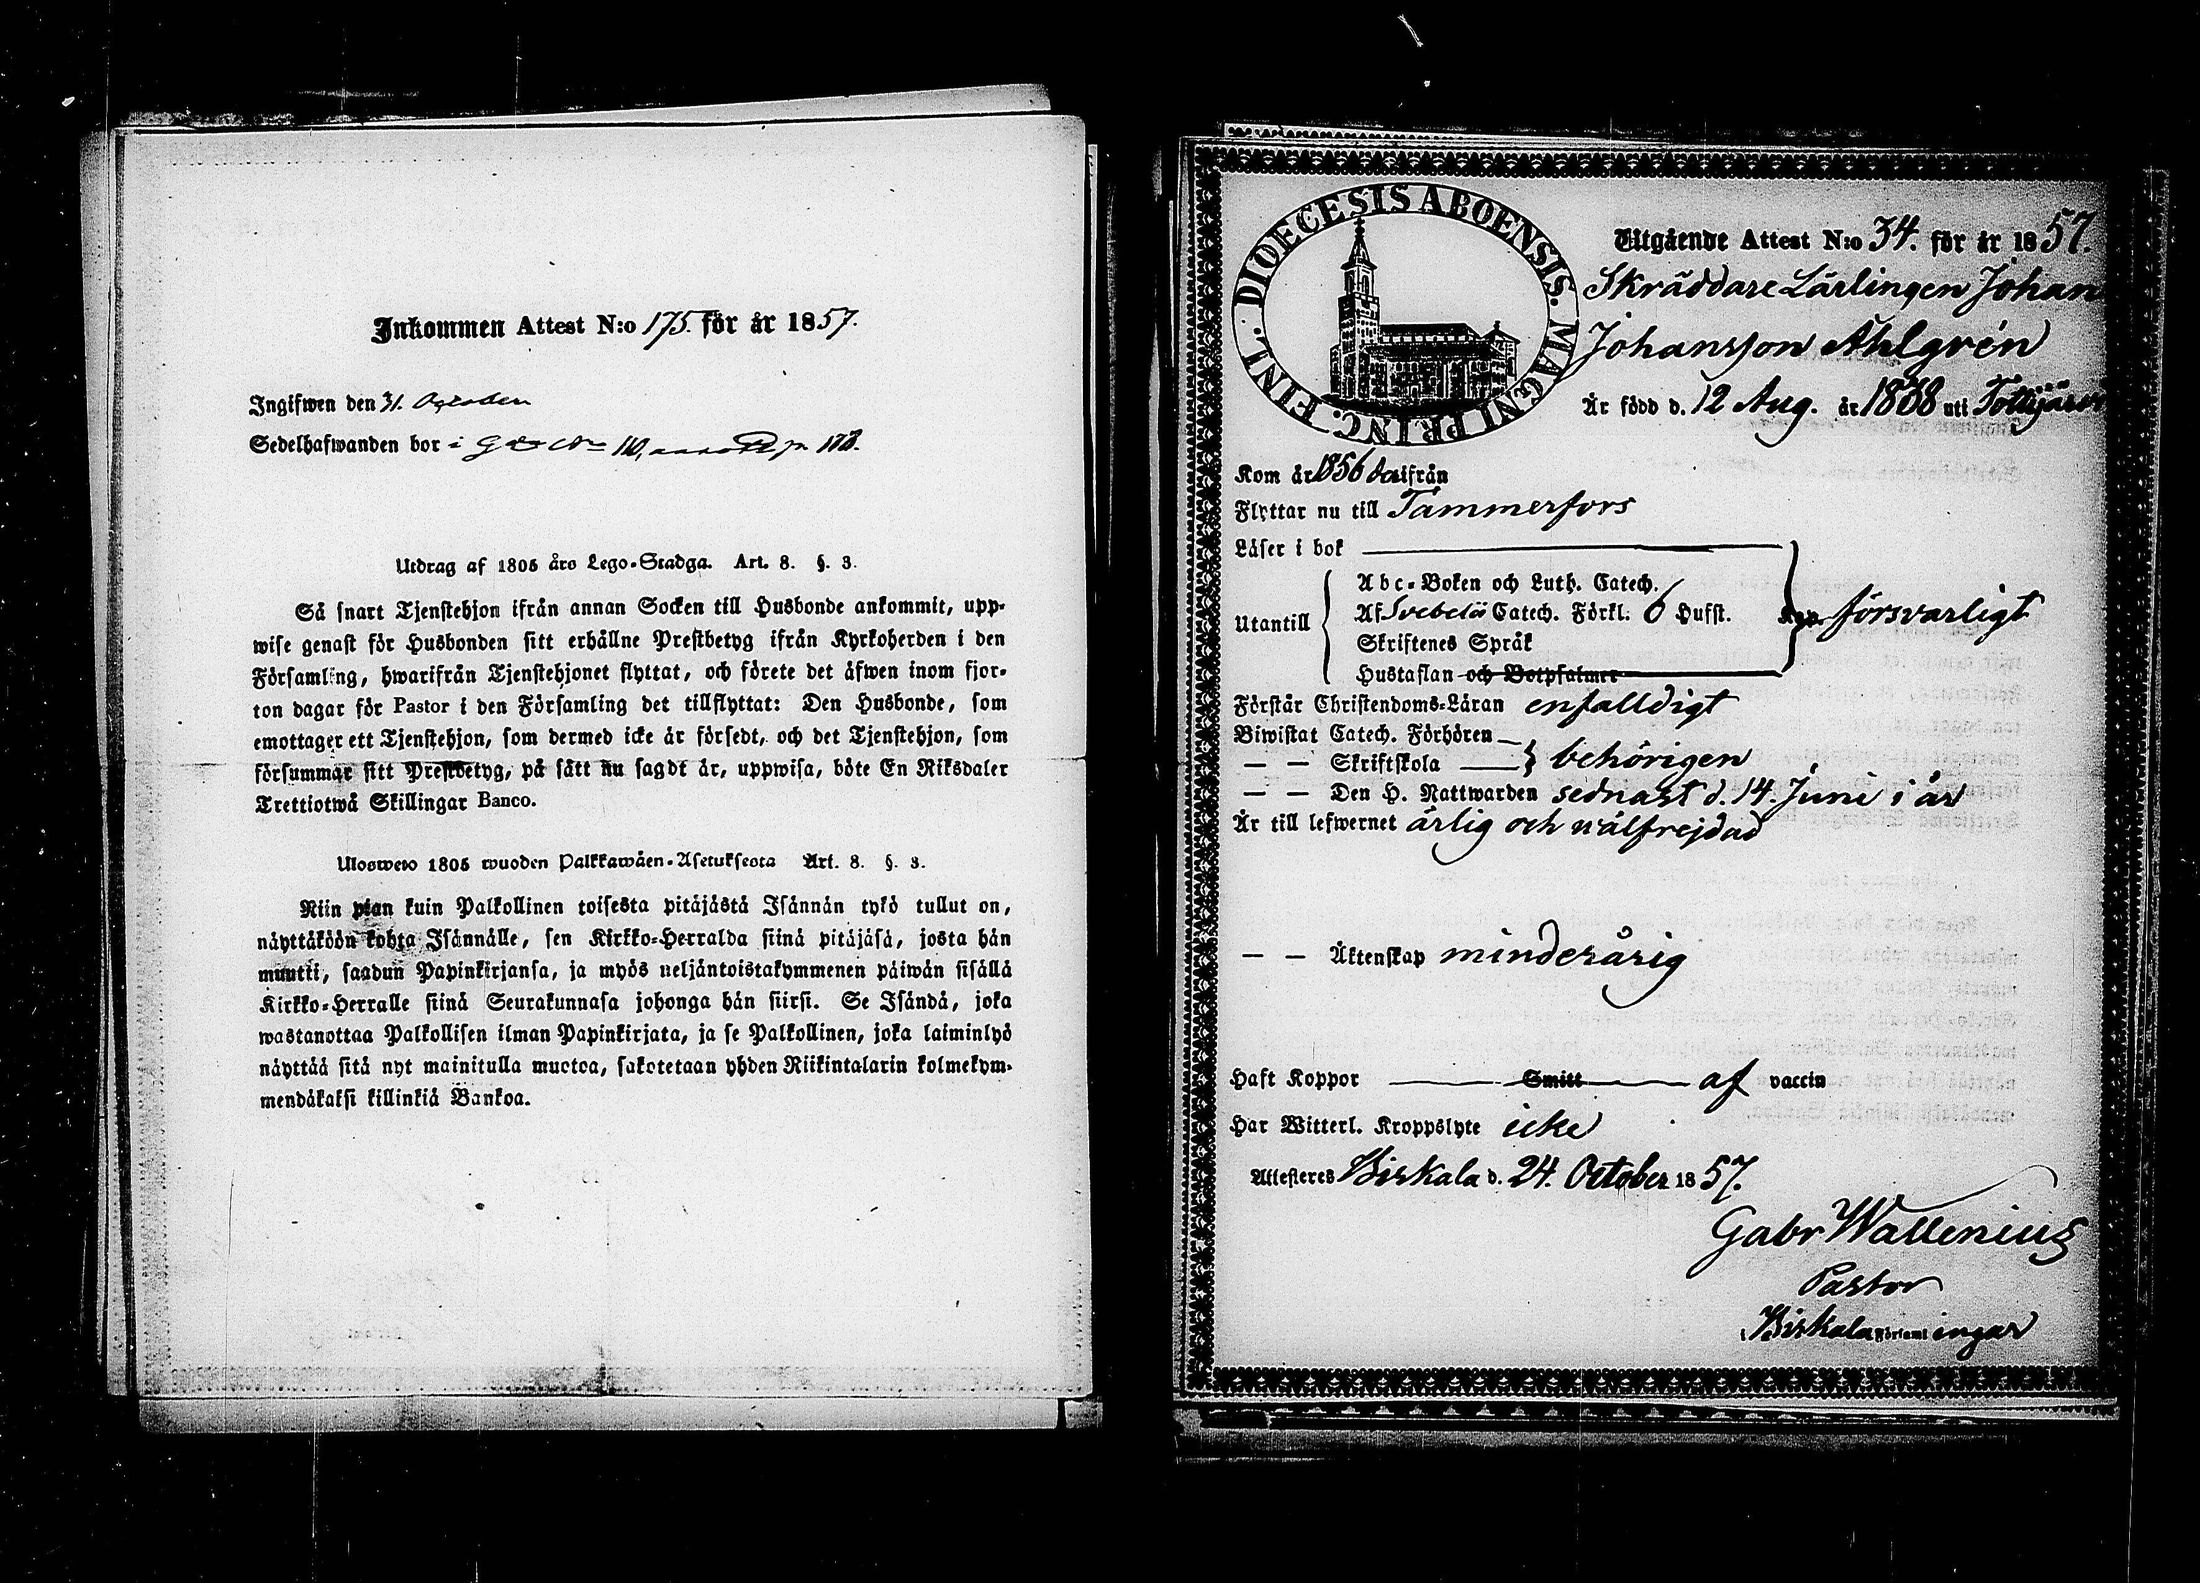 Inkommen Attest N:o 175. för år 1857.
Ingifwen den 31. October
Sedelhafwanden bor i
Utdrag af 1805 års Lego-Stadga. Art. 8. §. 3.
Så snart Tjenstehjon ifrån annan Socken till Husbonde ankommit, upp-
wise genast för Husbonden sitt erhållne Prestbetyg ifrån Kyrkoherden i den
Församling, hwarifrån Tjenstehjonet flyttat, och förete det äfwen inom fjor-
ton dagar för Pastor i den Församling det tillflyttat: Den Husbonde, som
emottager ett Tjenstehjon, som dermed icke är försedt, och det Tjenstehjon, som
försummar sitt Prestbetyg, på sätt nu sagdt är, uppwisa, böte En Riksdaler
Trettiotwå Skillingar Banco.
Ulosweto 1805 wuoden Palkkawäen-Asetuksesta Art. 8. §. 3.
Niin pian kuin Palkollinen toisesta pitäjästä Isännän tykö tullut on,
näyttäköön kohta Isännälle, sen Kirkko-Herralda siinä pitäjäsä, josta hän
muutti, saadun Papinkirjansa, ja myös neljäntoistakymmenen päiwän sisällä
Kirkko-Herralle siinä Seurakunnasa johonga hän siirsi. Se Isändä, joka
wastanottaa Palkollisen ilman Papinkirjata, ja se Palkollinen, joka laiminlyö
näyttää sitä nyt mainitulla muotoa, sakotetaan yhden Riikintalarin kolmekym-
mendäkaksi killinkiä Bankoa.
DIOECESIS ABOENSIS. MAGNI PRINC. FINL.
Utgående Attest N:o 34. för år 1857.
Skräddare Lärlingen Johan
Johansson Ahlgrén
Är född d. 12 Aug. år 1838 uti Tottijärvi
Kom år 1856 därifrån
Flyttar nu till Tammerfors
Läser i bok
Abc-Boken och Luth. Catech.
Utantill Af Svebelii Catech. Förkl. 6 Hufst. försvarligt
Skriftenes Språk
Hustaflan och Botpsalmer
Förstår Christendoms-Läran enfalldigt
Biwistat Catech. Förhören
— — Skriftskola behörigen
— — Den H. Nattwarden sednast d. 14. Juni i år
Är till lefwernet ärlig och wälfrejdad
— — Äktenskap minderårig
Haft Koppor Smitt af vaccin
Har Witterl. Kroppslyte icke
Attesteres Birkala d. 24. October 1857.
Gabr Wallenius
Pastor
i Birkala Församl ingar